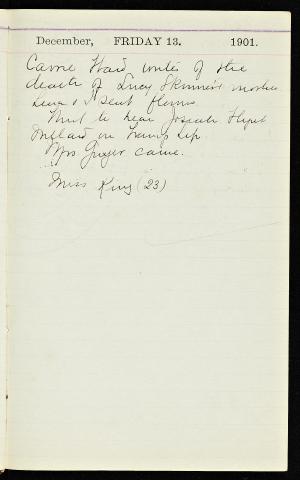 December, FRIDAY 13. 1901.
Carrie Ward writes of the
death of Lucy Skinner's mother
Lena & I sent flowers.
Went to hear Josiah Flynt
Willard on
Mrs Gruger came.
Miss King (23)